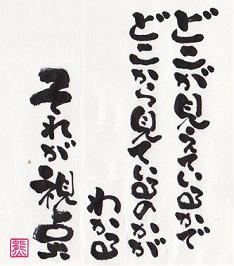 どこが見えているかで
どこから見ているのかが
わかる
それが視点